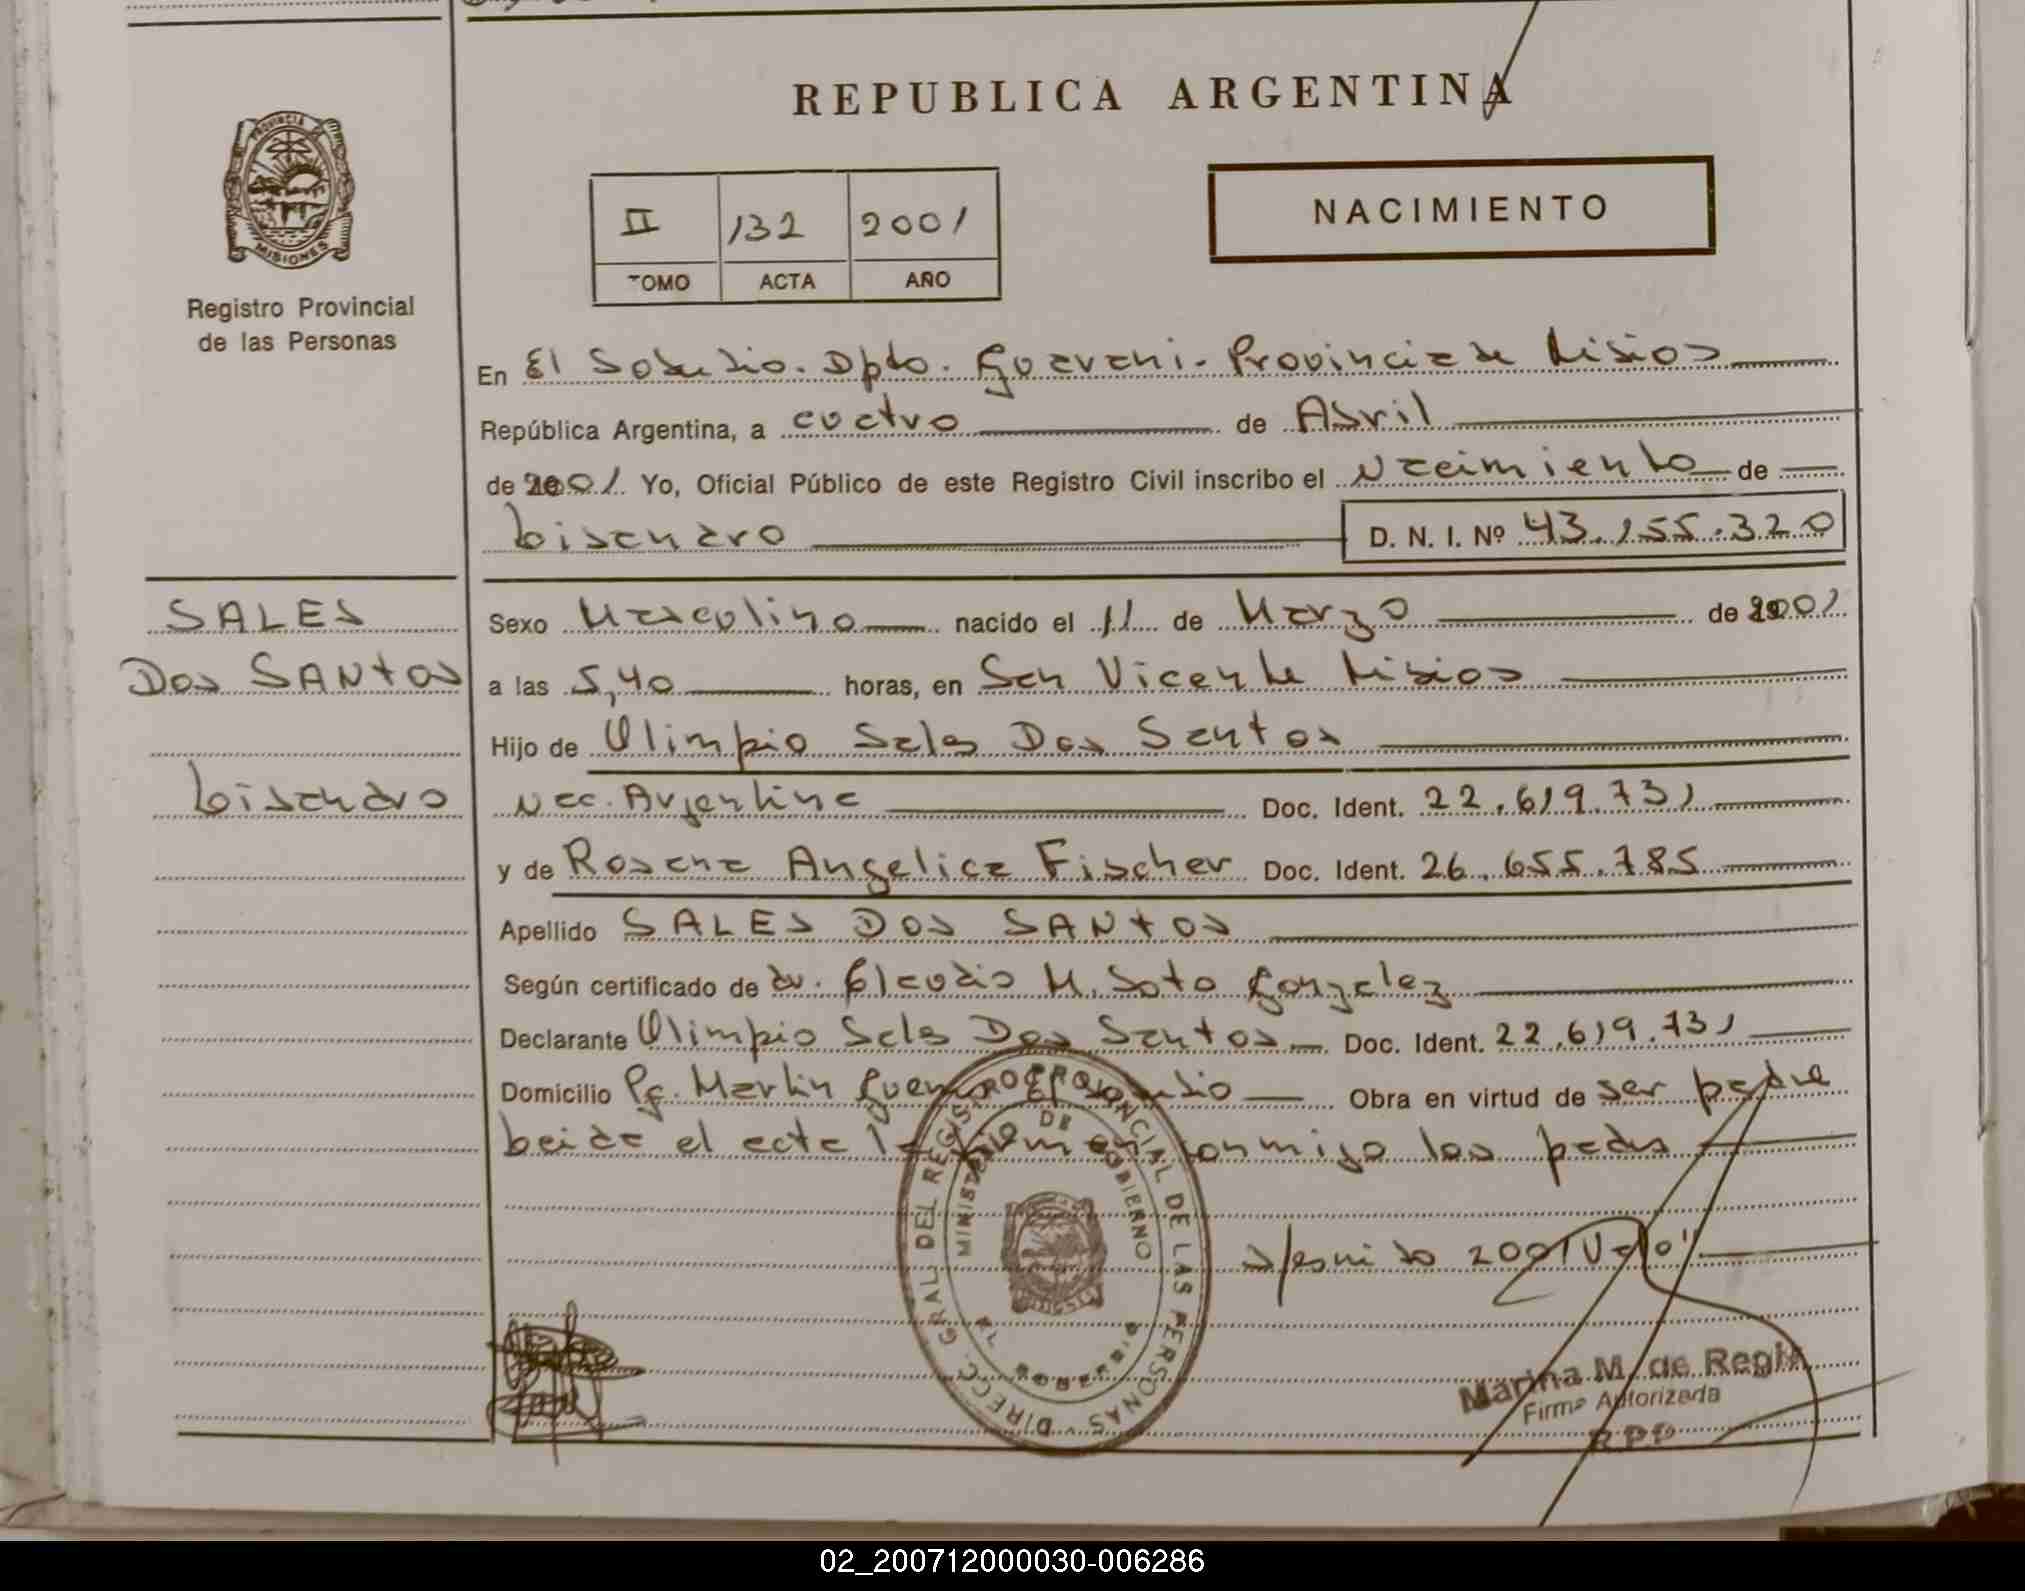 REPUBLICA ARGENTINA
PROVINCIA
MISIONES
Registro Provincial
de las Personas
II 132 2001
TOMO ACTA AÑO
NACIMIENTO
En El Soberbio. Dpto. Guarani - Provincia de Misios
República Argentina, a cuatro de Abril
de 2001 Yo, Oficial Público de este Registro Civil inscribo el Nacimiento de
Lisandro D. N. I. Nº 43.155.320
SALES
DOS SANTOS
Lisandro
Sexo Masculino nacido el 11 de Marzo de 2001
a las 5,40 horas, en San Vicente Misios
Hijo de Olimpio Sales Dos Santos
Nac. Argentina Doc. Ident. 22.619.731
y de Rosana Angelica Fischer Doc. Ident. 26.655.785
Apellido SALES DOS SANTOS
Según certificado de dr. Claudio M. Soto Gonzalez
Declarante Olimpio Sales Dos Santos Doc. Ident. 22.619.731
Domicilio Pje. Martin Obra en virtud de ser padre
Leida el acta la conmigo los padres
DIRECC. GRAL. DEL REGISTRO PROVINCIAL DE LAS PERSONAS
MINISTERIO DE GOBIERNO
2001 Vale"
Marina M. de Regi
Firma Autorizada
RPP
02_200712000030-006286